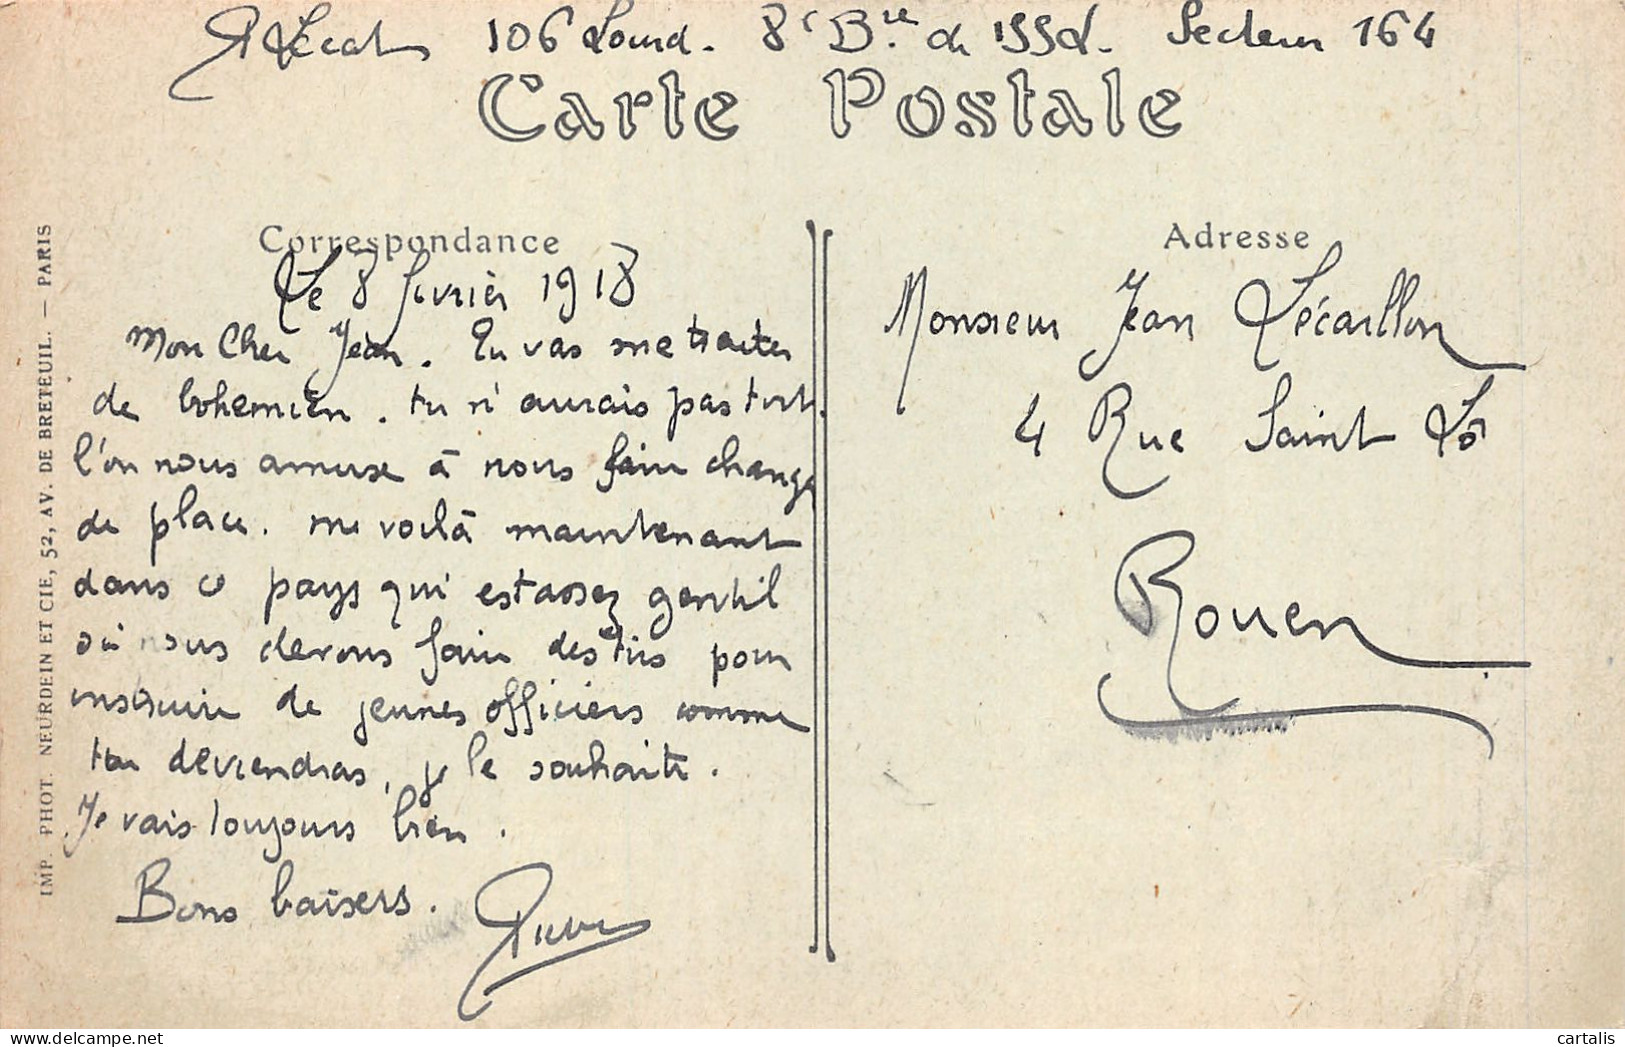 106 Lourd. 8e Bie de 155L. Secteur 164
Carte Postale
Correspondance
Le 8 février 1918
Mon Cher Jean. Tu vas me traiter
de bohemien. tu n'aurais pas tort.
l'on nous amuse à nous faire changer
de place. me voilà maintenant
dans ce pays qui est assez gentil
où nous devons faire des tirs pour
instruire de jeunes officiers comme
tu deviendras, je le souhaite.
Je vais toujours bien.
Bons baisers.
Pierre
Adresse
Monsieur Jean Lécaillon
4 Rue Saint Lô
Rouen
IMP. PHOT. NEURDEIN ET CIE, 52, AV. DE BRETEUIL. — PARIS
cartalis